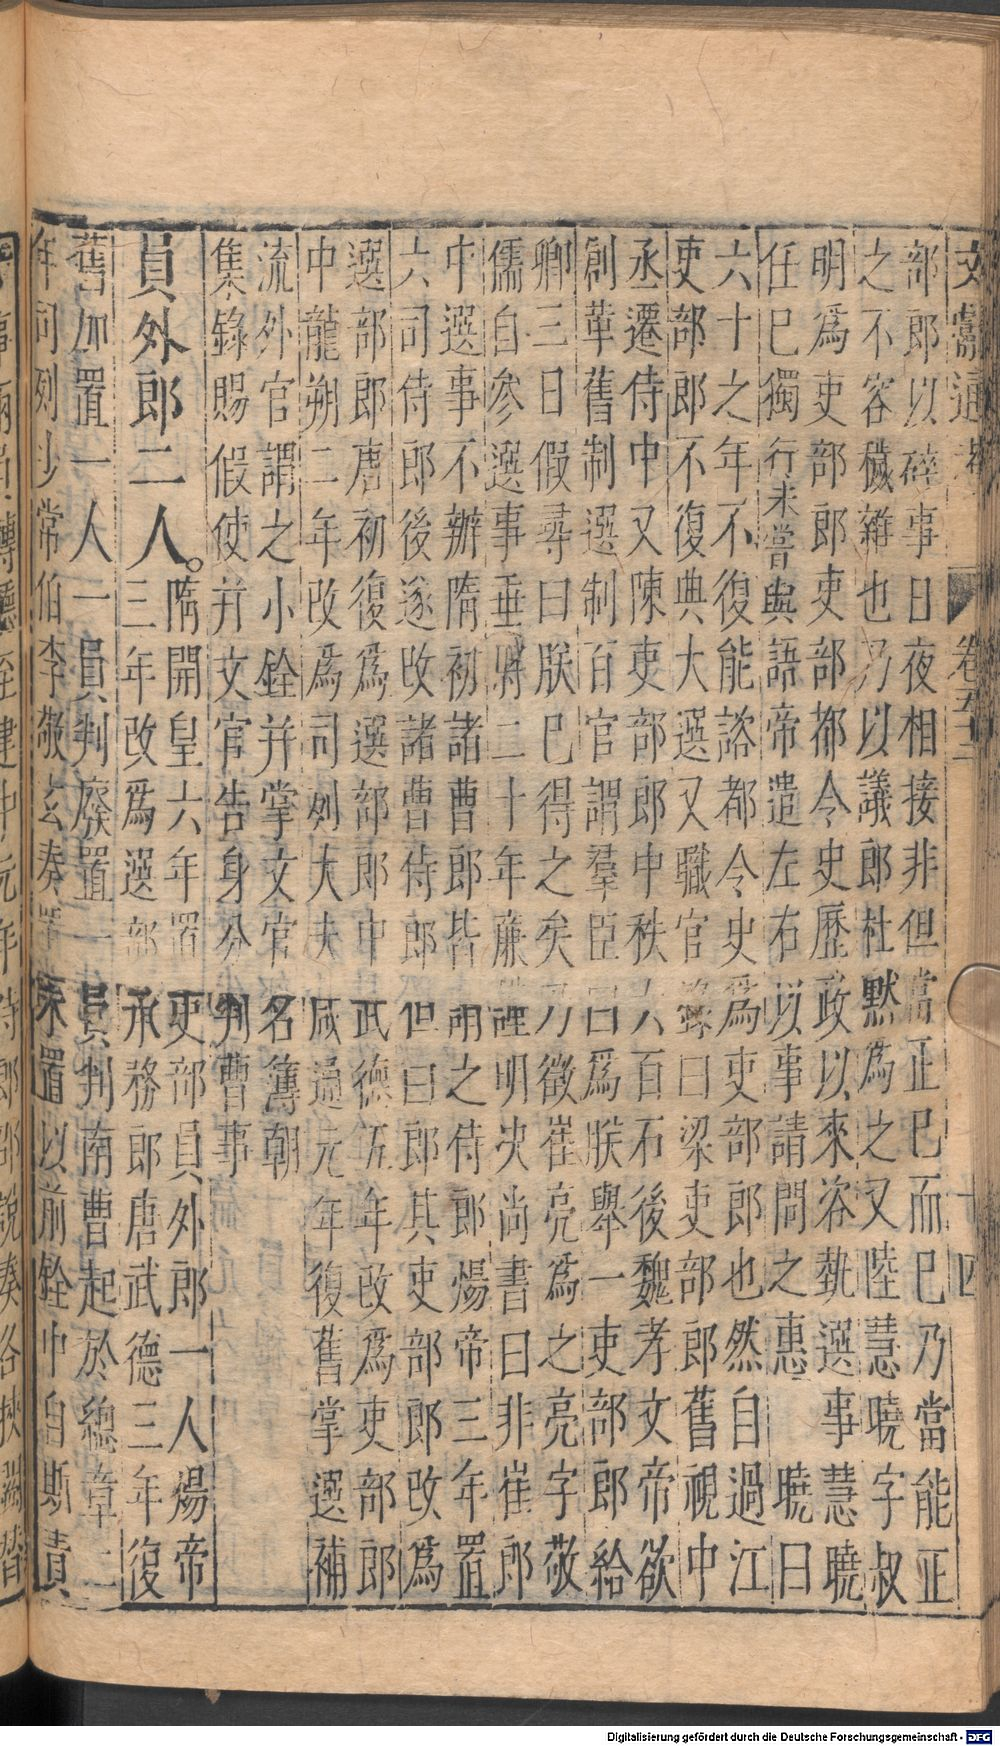 文獻通考 卷五十二 十四
部郎以碎事日夜相接非但當正已而已乃當能正
之不容穢雜也乃以議郎杜默為之又陸慧曉字叔
明為吏部郎吏部都令史歷政以來咨執選事慧曉
任已獨行未嘗與語帝遣左右以事請問之惠曉曰
六十之年不復能諮都令史為吏部郎也然自過江
吏部郎不復典大選又職官錄曰梁吏部郎舊視中
丞遷侍中又陳吏部郎中秩六百石後魏孝文帝欲
創革舊制選制百官謂羣臣曰為朕舉一吏部郎給
卿三日假尋曰朕已得之矣乃徵崔亮為之亮字敬
儒自參選事垂將二十年廉 明决尚書曰非崔郎
中選事不辦隋初諸曹郎皆謂之侍郎煬帝三年置
六司侍郎後遂改諸曹侍郎但曰郎其吏部郎改為
選部郎唐初復為選部郎中武德五年改為吏部郎
中龍朔二年改為司列大夫咸通元年復舊掌選補
流外官謂之小銓并掌文官名簿朝
集錄賜假使并文官告身分判曹事
員外郎二人。隋開皇六年置吏部員外郎一人煬帝
三年改為選部承務郎唐武德三年復
舊加置一人一員判廢置一員判南曹起於總章二
年司列少常伯李敬玄奏 未置以前銓中自斯責
Digitalisierung gefördert durch die Deutsche Forschungsgemeinschaft - DFG